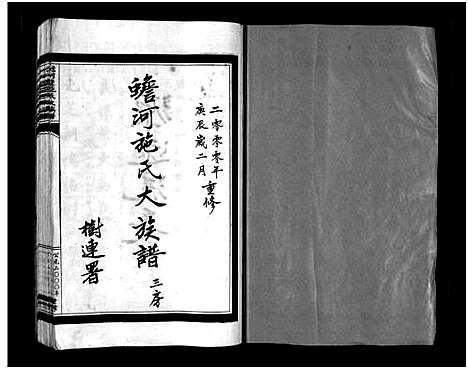 二零零零年重修
庚辰歲二月
蟾河施氏大族譜
三房
樹連署